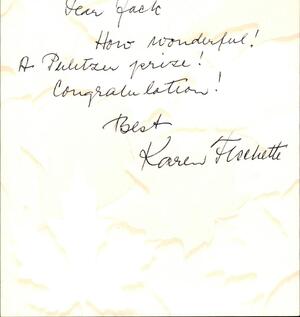 Dear Jack
How wonderful!
A Pulitzer prize!
Congratulation!
Best
Karen